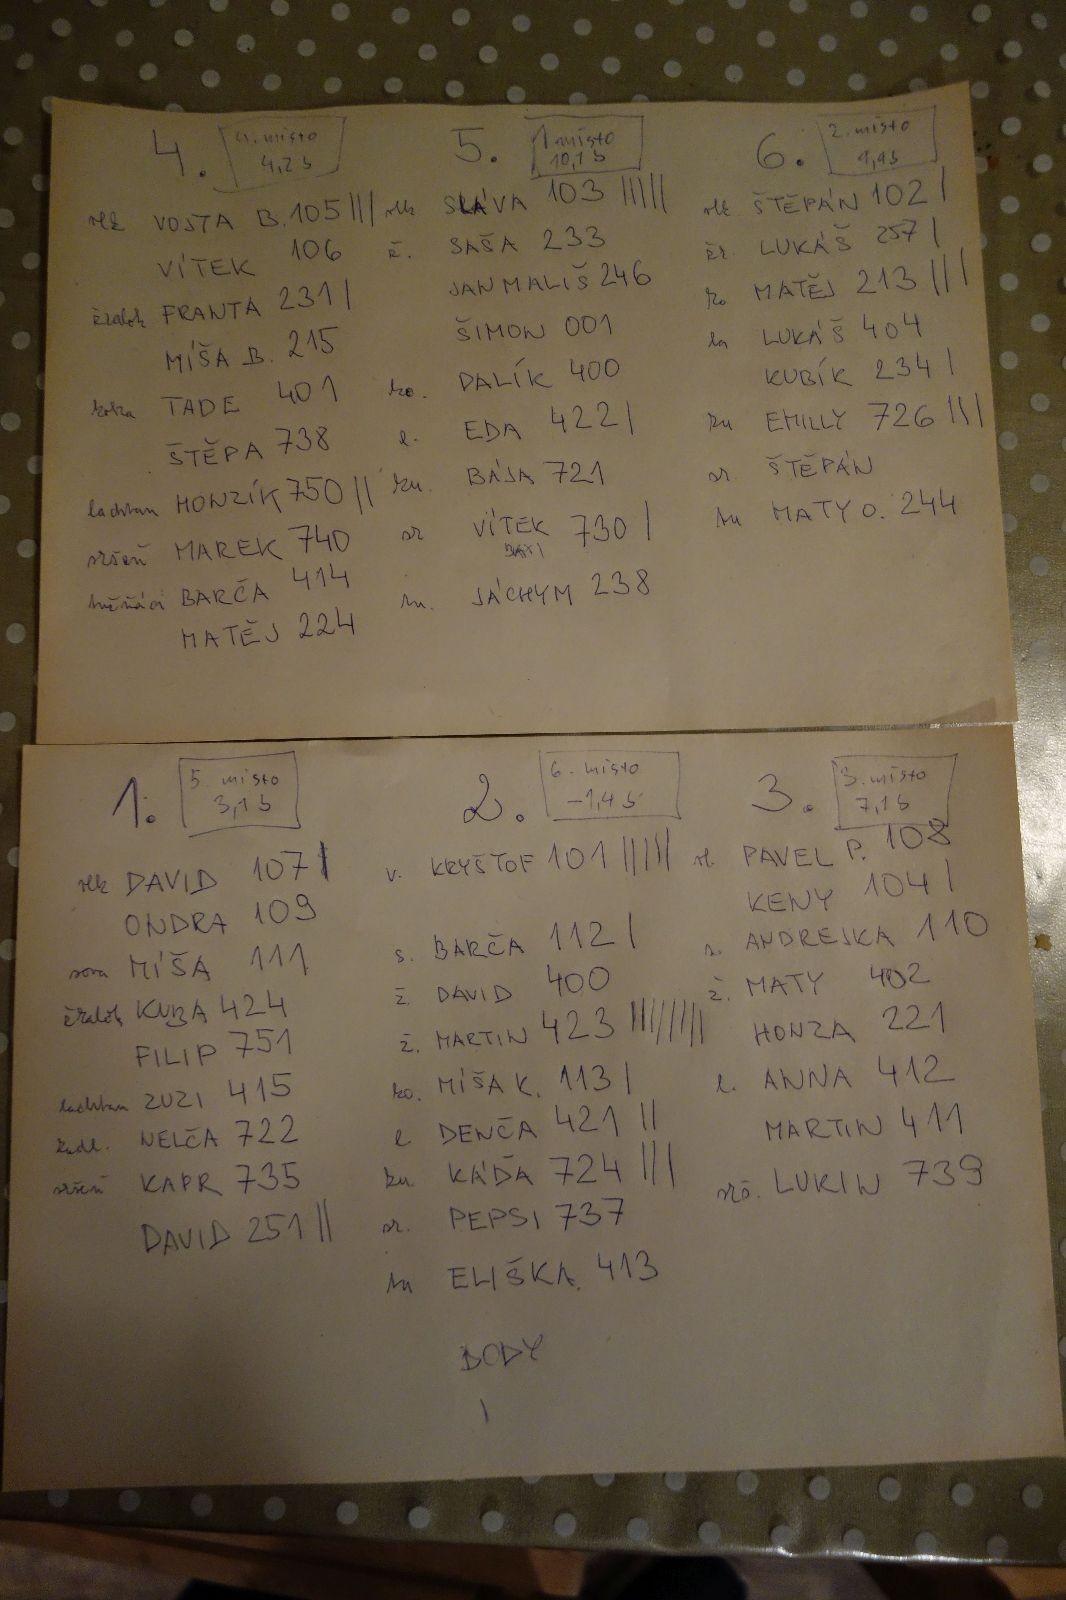 4.
4. místo
4,2 b
vlk VOJTA B. 105 ||||
VÍTEK 106
žralok FRANTA 231 |
MÍŠA B. 215
kočka TADE 401
ŠTĚPA 738
lachtan HONZÍK 750 ||
sršeň MAREK 740
tučňáci BARČA 414
MATĚJ 224
5.
1. místo
10,1 b
vlk SLÁVA 103 |||||
ž. SAŠA 233
JAN MALIŠ 246
ŠIMON 001
ko. DALÍK 400
l. EDA 422 |
ku. BÁJA 721
sr VÍTEK 730 |
tu. JÁCHYM 238
6.
2. místo
9,9 b
vlk ŠTĚPÁN 102 |
žr. LUKÁŠ 257 |
ko MATĚJ 213 |||
la LUKÁŠ 404
KUBÍK 234 |
ku EMILLY 726 |||
sr. ŠTĚPÁN
tu MATY O. 244
1.
5. místo
3,1 b
vlk DAVID 107 |
ONDRA 109
sova MÍŠA 111
žralok KUBA 424
FILIP 751
lachtan ZUZI 415
kudl. NELČA 722
sršeň KAPR 735
DAVID 251 ||
2.
6. místo
-1,4 b
v. KRYŠTOF 101 |||||
s. BARČA 112 |
ž. DAVID 400
ž. MARTIN 423 |||||||||
ko. MÍŠA K. 113 |
l DENČA 421 ||
ku. KÁĎA 724 |||
sr. PEPSI 737
tu ELIŠKA. 413
BODY
|
3.
3. místo
7,1 b
vl. PAVEL P. 108
KENY 104 |
s. ANDREJKA 110
ž. MATY 402
HONZA 221
l. ANNA 412
MARTIN 411
srš. LUKIN 739